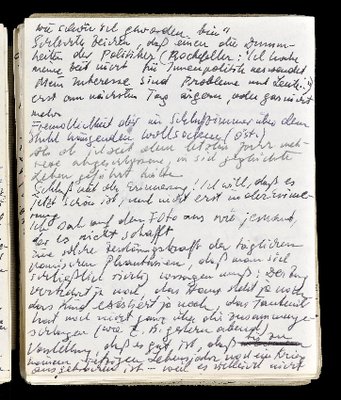 wie schön ich geworden bin"
Schlechte Zeichen, daß einen die Dumm-
heiten der Politiker (Rockefeller: "Ich habe
meine Zeit nicht für Innenpolitik verwendet
Mein Interesse sind Probleme und Leute")
erst am nächsten Tag ärgern, oder gar nicht
mehr
Freundlichkeit der im Schlafzimmer über dem
Stuhl hängenden Wollsachen
als ob ich seit dem letzten Jahr meh-
rere abgeschlossene, in sich geglückte
Leben geführt hätte
Schluß mit der Erinnerung! Ich will, daß es
jetzt schön ist, und nicht erst in der Erinne-
rung
Ich sah auf dem Foto aus wie jemand,
der es nicht schafft
Eine solche Zerstörungskraft der täglichen
panischen Phantasien, daß man sich
schließlich richtig vorsagen muß: Der
verkehrt ja noch, das Haus steht ja noch,
das Kind existiert ja noch, das
hat noch nicht ganz über die zusammenge-
schlagen (wie z. B. gestern abend)
Vorstellung, daß es gut ist, daß
meinem jetzigen Lebensjahr noch ein Krieg
ausgebrochen ist – weil es vielleicht nicht